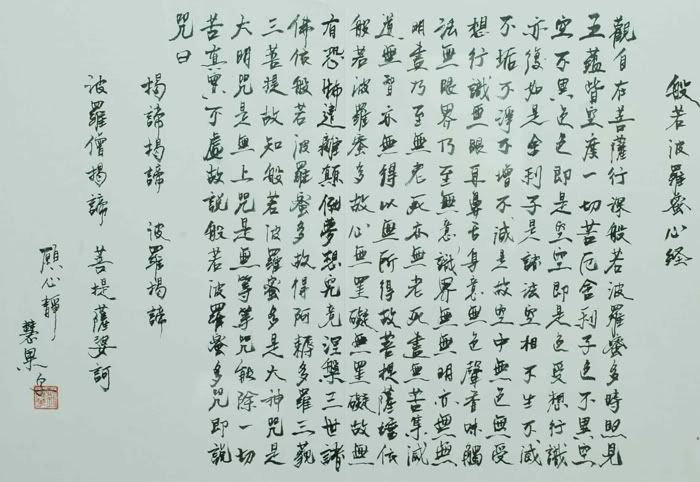 般若波羅蜜心經
觀自在菩薩行深般若波羅蜜多時照見
五蘊皆空度一切苦厄舍利子色不異空
空不異色色即是空空即是色受想行識
亦復如是舍利子是諸法空相不生不滅
不垢不淨不增不減是故空中無色無受
想行識無眼耳鼻舌身意無色聲香味觸
法無眼界乃至無意識界無無明亦無無
明盡乃至無老死亦無老死盡無苦集滅
道無智亦無得以無所得故菩提薩埵依
般若波羅蜜多故心無罣礙無罣礙故無
有恐怖遠離顛倒夢想究竟涅槃三世諸
佛依般若波羅蜜多故得阿耨多羅三藐
三菩提故知般若波羅蜜多是大神咒是
大明咒是無上咒是無等等咒能除一切
苦真實不虛故說般若波羅蜜多咒即說
咒曰
揭諦揭諦 波羅揭諦
波羅僧揭諦 菩提薩婆訶
願心靜
慧